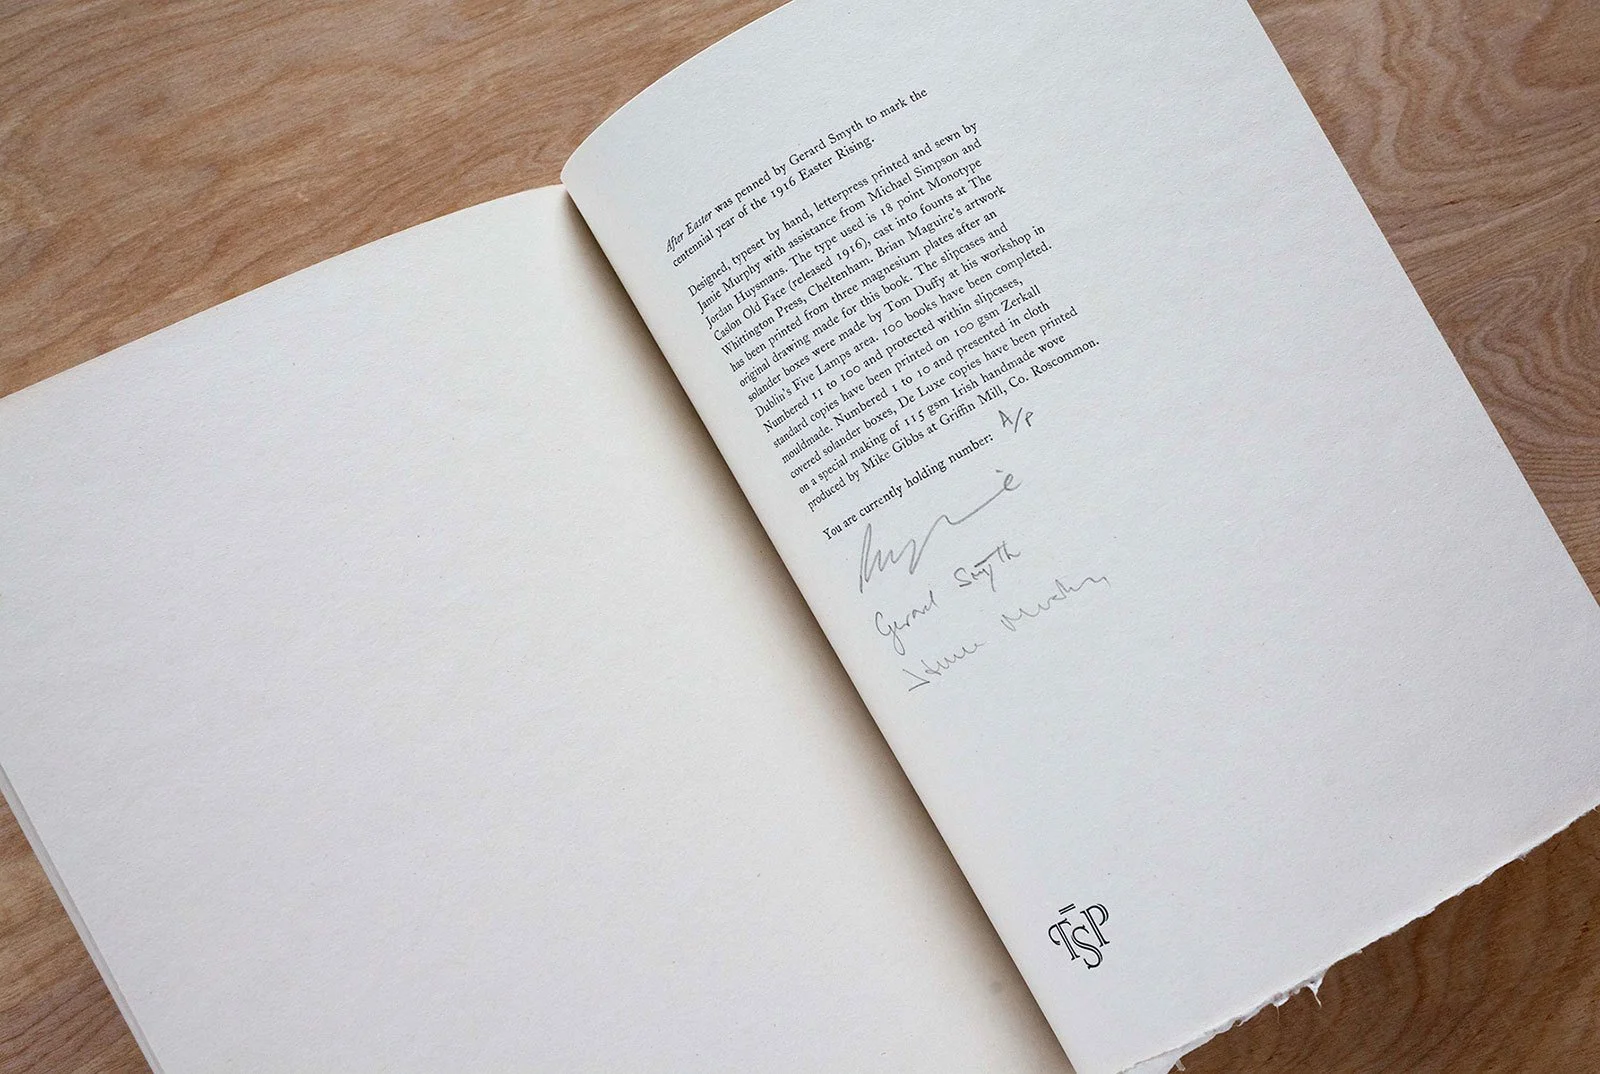 After Easter was penned by Gerard Smyth to mark the
centennial year of the 1916 Easter Rising.
Designed, typeset by hand, letterpress printed and sewn by
Jamie Murphy with assistance from Michael Simpson and
Jordan Huysmans. The type used is 18 point Monotype
Caslon Old Face (released 1916), cast into founts at The
Whittington Press, Cheltenham. Brian Maguire's artwork
has been printed from three magnesium plates after an
original drawing made for this book. The slipcases and
solander boxes were made by Tom Duffy at his workshop in
Dublin's Five Lamps area. 100 books have been completed.
Numbered 11 to 100 and protected within slipcases,
standard copies have been printed on 100 gsm Zerkall
mouldmade. Numbered 1 to 10 and presented in cloth
covered solander boxes, De Luxe copies have been printed
on a special making of 115 gsm Irish handmade wove
produced by Mike Gibbs at Griffin Mill, Co. Roscommon.
You are currently holding number: A/P
Gerard Smyth
Jamie Murphy
TSP